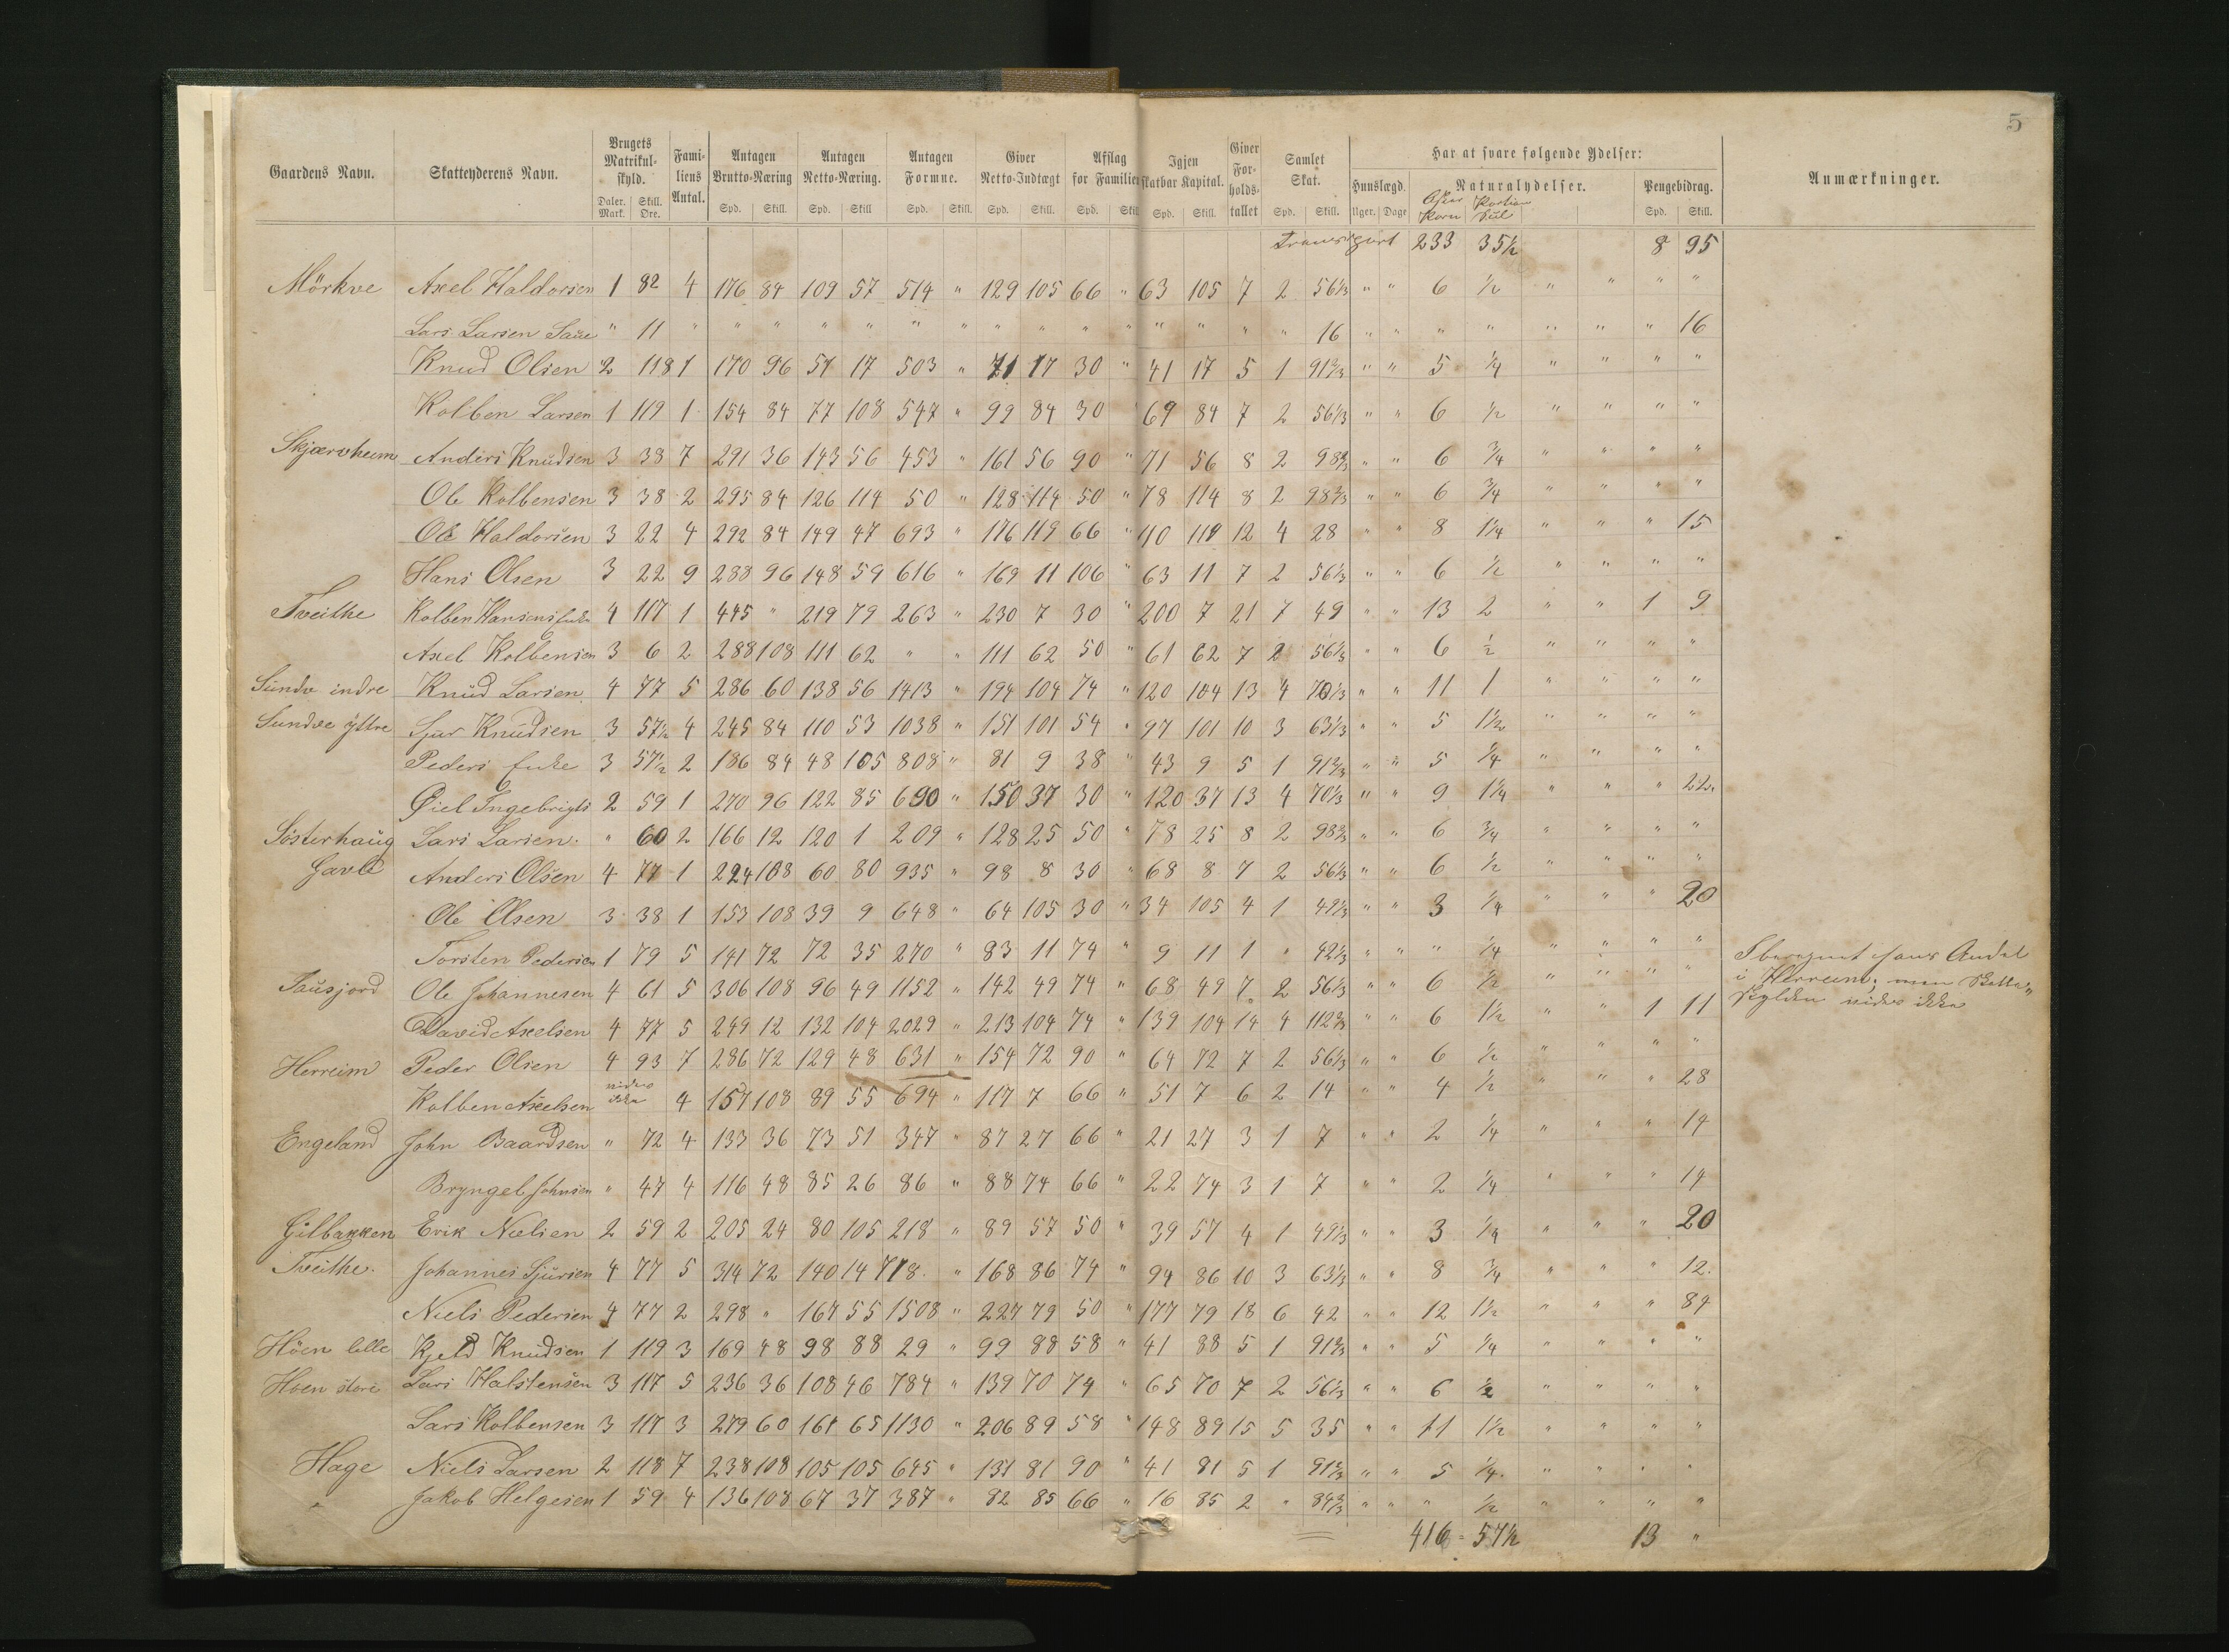 5
Gaardens Navn. Skatteyderens Navn. Brugets Matrikul-skyld. Fami-liens Antal. Antagen Brutto-Næring Antagen Netto-Næring. Antagen Formne. Giver Netto-Indtægt Afslag for Familien Igjen skatbar Kapital. Giver For-holds-tallet Samlet Skat. Har at svare følgende Ydelser: Anmærkninger.
Huuslægd. Naturalydelser. Pengebidrag.
Daler. Mark. Skill. Ore. Spd. Skill. Spd. Skill Spd. Skill. Spd. Skill. Spd. Skill Spd. Skill. Spd. Skill. Uger. Dage Korn Spd. Skill.
Transport 233 35½ 8 95
Mörkve Axel Haldorsen 1 82 4 176 84 109 57 514 " 129 105 66 " 63 105 7 2 56⅓ " " 6 ½ " " " "
Lars Larsen Saue " 11 " " " " " " " " " " " " " " " 16 " " " " " " " 16
Knud Olsen 2 118 1 170 96 51 17 503 " 71 17 30 " 41 17 5 1 91⅔ " " 5 ¼ " " " "
Kolben Larsen 1 119 1 154 84 77 108 547 " 99 84 30 " 69 84 7 2 56⅓ " " 6 ½ " " " "
Skjærvheim Anders Knudsen 3 38 7 291 36 143 56 453 " 161 56 90 " 71 56 8 2 98⅔ " " 6 ¾ " " " "
Ole Kolbensen 3 38 2 295 84 126 114 50 " 128 114 50 " 78 114 8 2 98⅔ " " 6 ¾ " " " "
Ole Haldorsen 3 22 4 292 84 149 47 693 " 176 119 66 " 110 119 12 4 28 " " 8 1¼ " " " 15
Hans Olsen 3 22 9 288 96 148 59 616 " 169 11 106 " 63 11 7 2 56⅓ " " 6 ½ " " " "
Tveithe Kolben Hansens Enke 4 117 1 445 " 219 79 263 " 230 7 30 " 200 7 21 7 49 " " 13 2 " " 1 9
Axel Kolbensen 3 6 2 288 108 111 62 " " 111 62 50 " 61 62 7 2 56⅓ " " 6 ½ " " " "
Sundve indre Knud Larsen 4 77 5 286 60 138 56 1413 " 194 104 74 " 120 104 13 4 70⅓ " " 11 1 " " " "
Sundve yttre Sjur Knudsen 3 57½ 4 245 84 110 53 1038 " 151 101 54 " 97 101 10 3 63⅓ " " 5 1½ " " " "
Peders Enke 3 57½ 2 186 84 48 105 808 " 81 9 38 " 43 9 5 1 91⅔ " " 5 ¼ " " " "
Giel Ingebrigts 2 59 1 270 96 122 85 690 " 150 37 30 " 120 37 13 4 70⅓ " " 9 1¼ " " " 22
Sösterhaug Lars Larsen " 60 2 166 12 120 1 209 " 128 25 50 " 78 25 8 2 98⅔ " " 6 ¾ " " " "
Gavle Anders Olsen 4 77 1 224 108 60 80 935 " 98 8 30 " 68 8 7 2 56⅓ " " 6 ½ " " " "
Ole Olsen 3 38 1 153 108 39 9 648 " 64 105 30 " 34 105 4 1 49⅓ " " 3 ¼ " " " 20
Torsten Pedersen 1 79 5 141 72 72 35 270 " 83 11 74 " 9 11 1 " 42⅓ " " " ¼ " " " "
Tausjord Ole Johannesen 4 61 5 306 108 96 49 1152 " 142 49 74 " 68 49 7 2 56⅓ " " 6 ½ " " " "
Iberegnet hans Andel
i Herreim, men Skatte-
skylden vides ikke
David Axelsen 4 77 5 249 12 132 104 2029 " 213 104 74 " 139 104 14 4 112⅔ " " 6 1½ " " 1 11
Herreim Peder Olsen 4 93 7 286 72 129 48 631 " 154 72 90 " 64 72 7 2 56⅓ " " 6 ½ " " " "
Kolben Axelsen vides ikke 4 157 108 89 55 694 " 117 7 66 " 51 7 6 2 14 " " 4 ½ " " " 28
Engeland John Baardsen " 72 4 133 36 73 51 347 " 87 27 66 " 21 27 3 1 7 " " 2 ¼ " " " 14
Bryngel Johnsen " 47 4 116 48 85 26 86 " 88 74 66 " 22 74 3 1 7 " " 2 ¼ " " " 14
Gilbakken Erik Nielsen 2 59 2 205 24 80 105 218 " 89 57 50 " 39 57 4 1 49⅓ " " 3 ¼ " " " 20
Tveithe. Johannes Sjursen 4 77 5 314 72 140 14 718 " 168 86 74 " 94 86 10 3 63⅓ " " 8 ¾ " " " 12.
Niels Pedersen 4 77 2 298 " 167 55 1508 " 227 79 50 " 177 79 18 6 42 " " 12 1½ " " " 84
Höen lille Kjeld Knudsen 1 119 3 169 48 98 88 29 " 99 88 58 " 41 88 5 1 91⅔ " " 5 ¼ " " " "
Höen store Lars Halstensen 3 117 5 236 36 108 46 784 " 139 70 74 " 65 70 7 2 56⅓ " " 6 ½ " " " "
Lars Kolbensen 3 117 3 279 60 161 65 1130 " 206 89 58 " 148 89 15 5 35 " " 11 1½ " " " "
Hage Niels Larsen 2 118 7 238 108 105 105 645 " 131 81 90 " 41 81 5 1 91⅔ " " 5 ¼ " " " "
" Jakob Helgesen 1 59 4 136 108 67 37 387 " 82 85 66 " 16 85 2 " 84⅔ " " " ½ " " " "
416 = 57½ 13 "